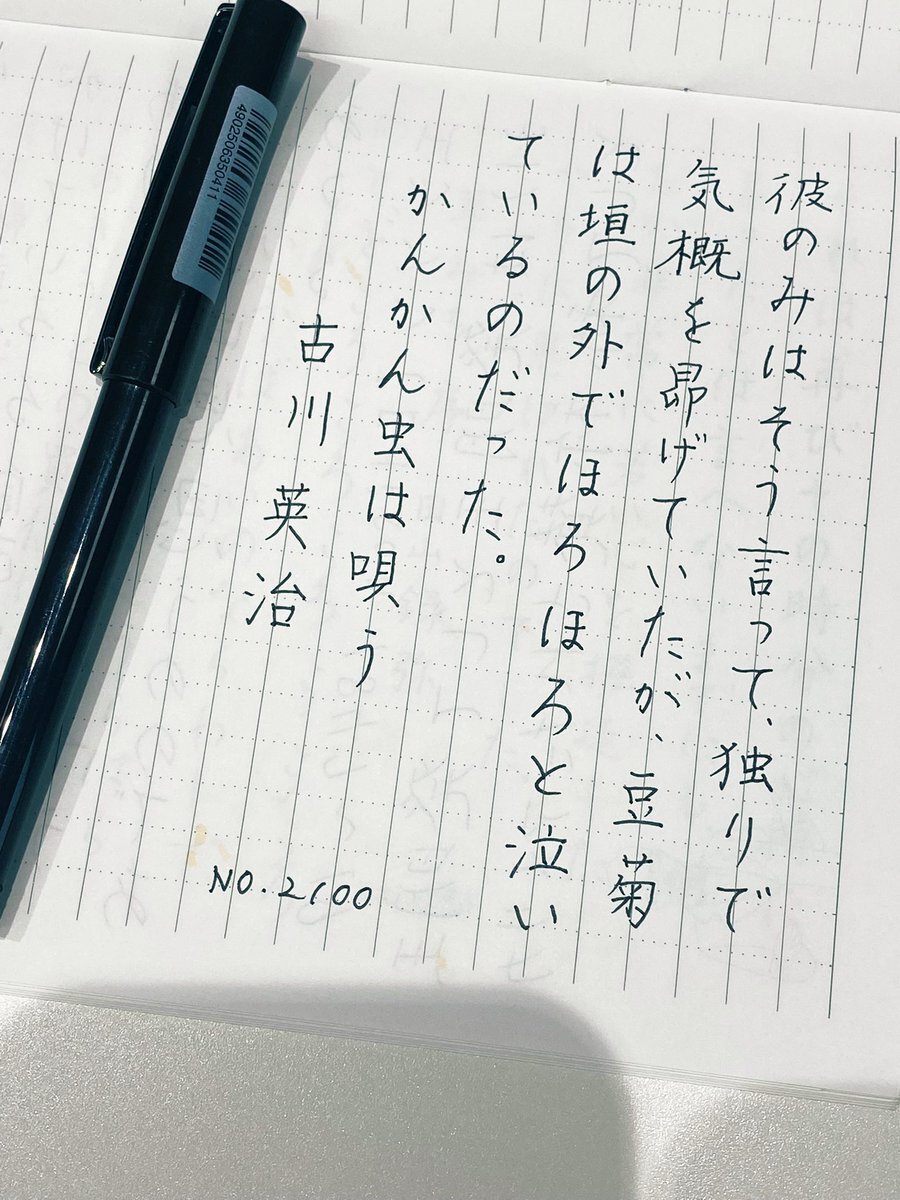 彼のみはそう言って、独りで
気概を昴げていたが、豆菊
は垣の外でほろほろと泣い
ているのだった。
かんかん虫は唄う
古川英治
NO.2100
4902506350411